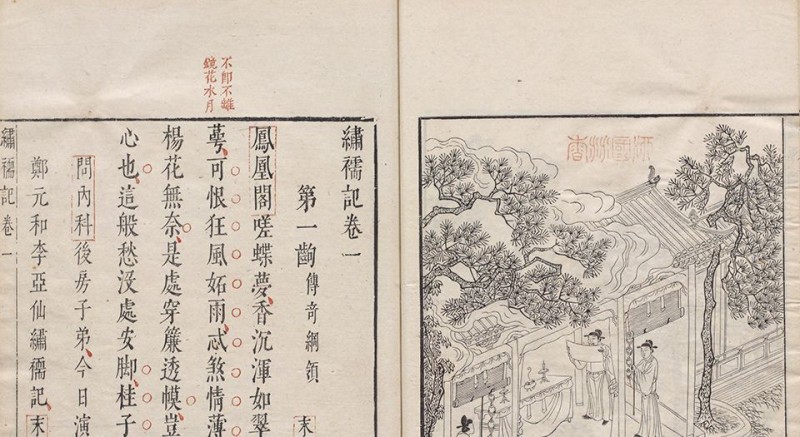 不即不離
鏡花水月
繡襦記卷一
第一齣 傳奇綱領 末
鳳凰閣嗟蝶夢、香沉渾如翠
蕚、可恨狂風妬雨、忒煞情薄
楊花無奈、是處穿簾透幙、豈
心也、這般愁没處安脚、桂子
問內科後房子弟、今日演
鄭元和李亞仙繡襦記、末
繡襦記 卷一